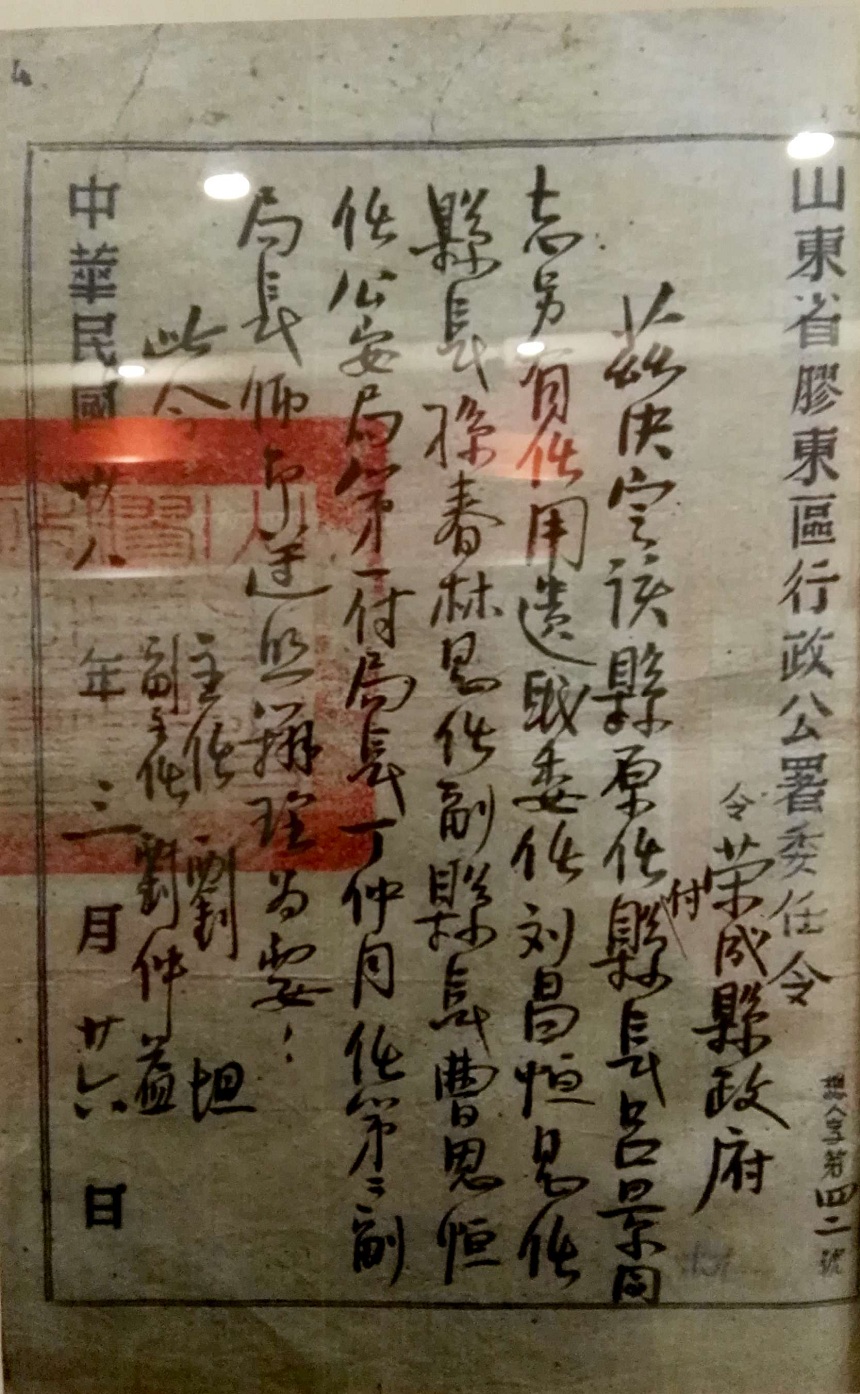 山東省膠東區行政公署委任令
人字第四二號
令
荣成縣政府
茲决定該縣原任付縣長吕景同
志另有任用遺职委任刘昌恒息任
縣長孫春林息任副縣長曹思恒
任公安局第一付局長丁仲月任第二副
局長 仰即遵照辦理为要!
此令
主任 劉坦
副主任 劉仲益
中華民國卅八年三月廿六日